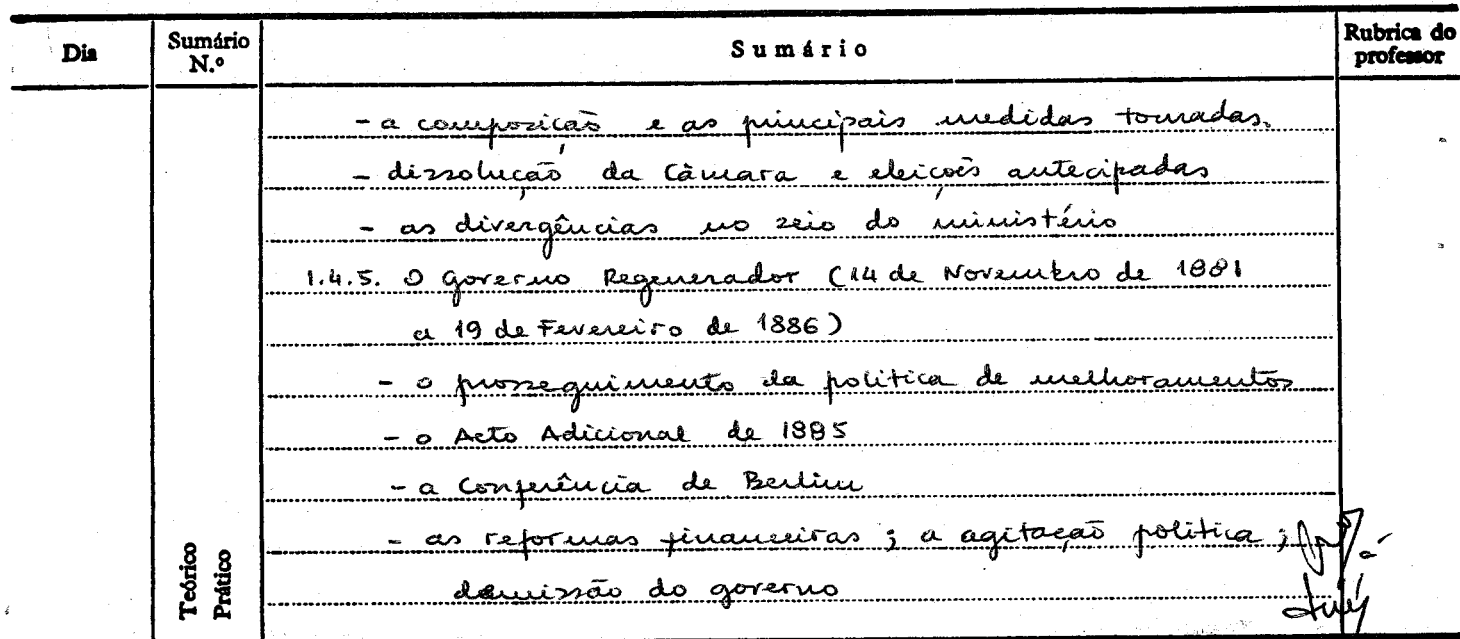 Dia
Sumário N.º
Sumário
Rubrica do professor
- a composição e as principais medidas tomadas.
- dissolução da Câmara e eleições antecipadas
- as divergências no seio do ministério
1.4.5. O Governo Regenerador (14 de Novembro de 1881
a 19 de Fevereiro de 1886)
- o prosseguimento da política de melhoramentos
- o Acto Adicional de 1885
- a Conferência de Berlim
- as reformas financeiras ; a agitação política ;
demissão do governo
Teórico
Prático